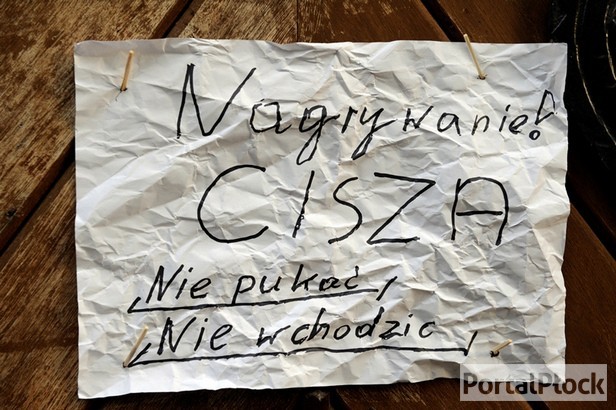 Nagrywanie!
CISZA
Nie pukać,
Nie wchodzić,
PortalPłock